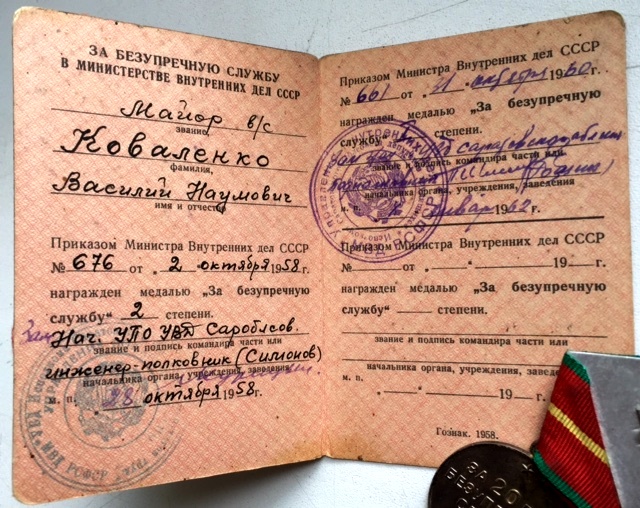 ЗА БЕЗУПРЕЧНУЮ СЛУЖБУ
В МИНИСТЕРСТВЕ ВНУТРЕННИХ ДЕЛ СССР
Майор в/с
звание
Коваленко
фамилия,
Василий Наумович
имя и отчество
Приказом Министра Внутренних дел СССР
№ 676 от „2 октября 1958г.
награжден медалью „За безупречную
службу“ 2 степени.
Зам Нач. УПО УВД Сароблисп.
звание и подпись командира части или
инженер-полковник (Симонов)
начальника органа, учреждения, заведения
м. п. 28 октября 1958г.
Приказом Министра Внутренних дел СССР
№ 661 от „21 ноября 1960г.
награжден медалью „За безупречную
службу“ степени.
звание и подпись командира части или
начальника органа, учреждения, заведения
м. января 1962г.
Приказом Министра Внутренних дел СССР
№ — от „—“ — 19—г.
награжден медалью „За безупречную
службу“ — степени.
звание и подпись командира части или
начальника органа, учреждения, заведе
м. п. „—“ — 19—г.
Гознак. 1958.
ЗА 20